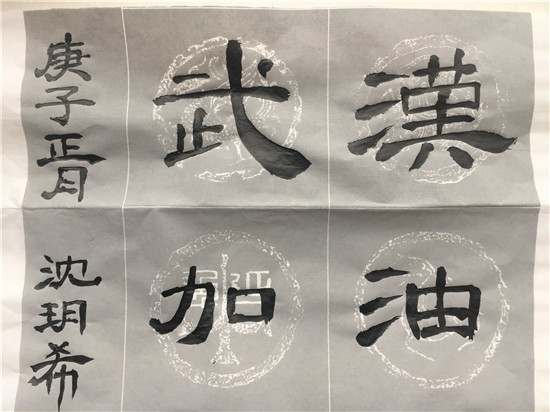 武漢
加油
庚子正月
沈玥希